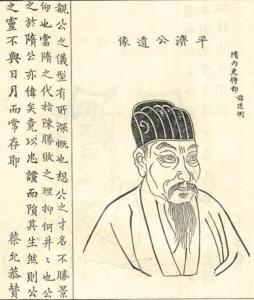 隋內史侍郎 諱道衡
平濟公遺像
觀公之儀型有所深慨也想公之才名不勝景
仰也當隋之代指陳勝敗之理抑何井々也公
之於隋公亦偉矣竟以忠讜而隕其生然則公
之靈不與日月而常存耶 蔡允恭贊